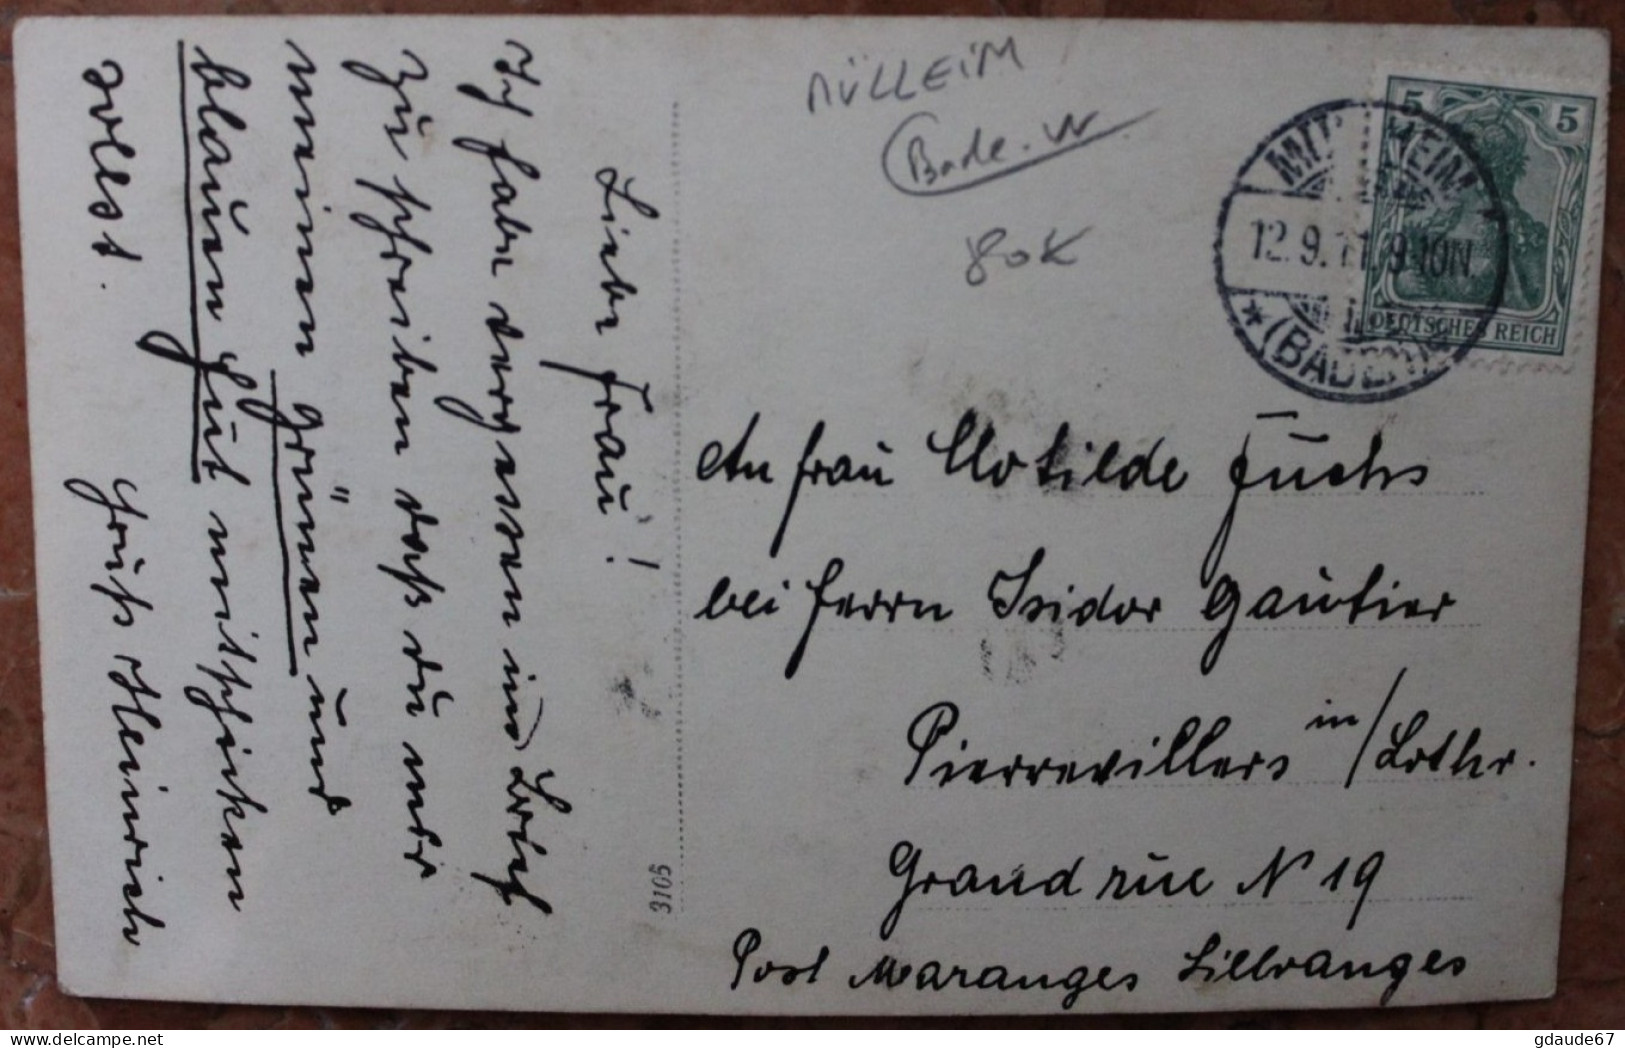 Liebe Frau!
Ich habe vergessen im Brief
zu schreiben daß du mir
meinen grünen und
blauen Hut mitschicken
sollst.
Gruß Heinrich
MÜLLEIM
Bade. W
80K
5 5
DEUTSCHES REICH
MÜLLHEIM
12.9.11.9-10N
* (BADEN)
An Frau Clotilde Fuchs
bei Herrn Isidor Gautier
Pierrevillers in/Lothr.
Grand rue N 19
Post Maranges Sillvanges
3106
gdaude67